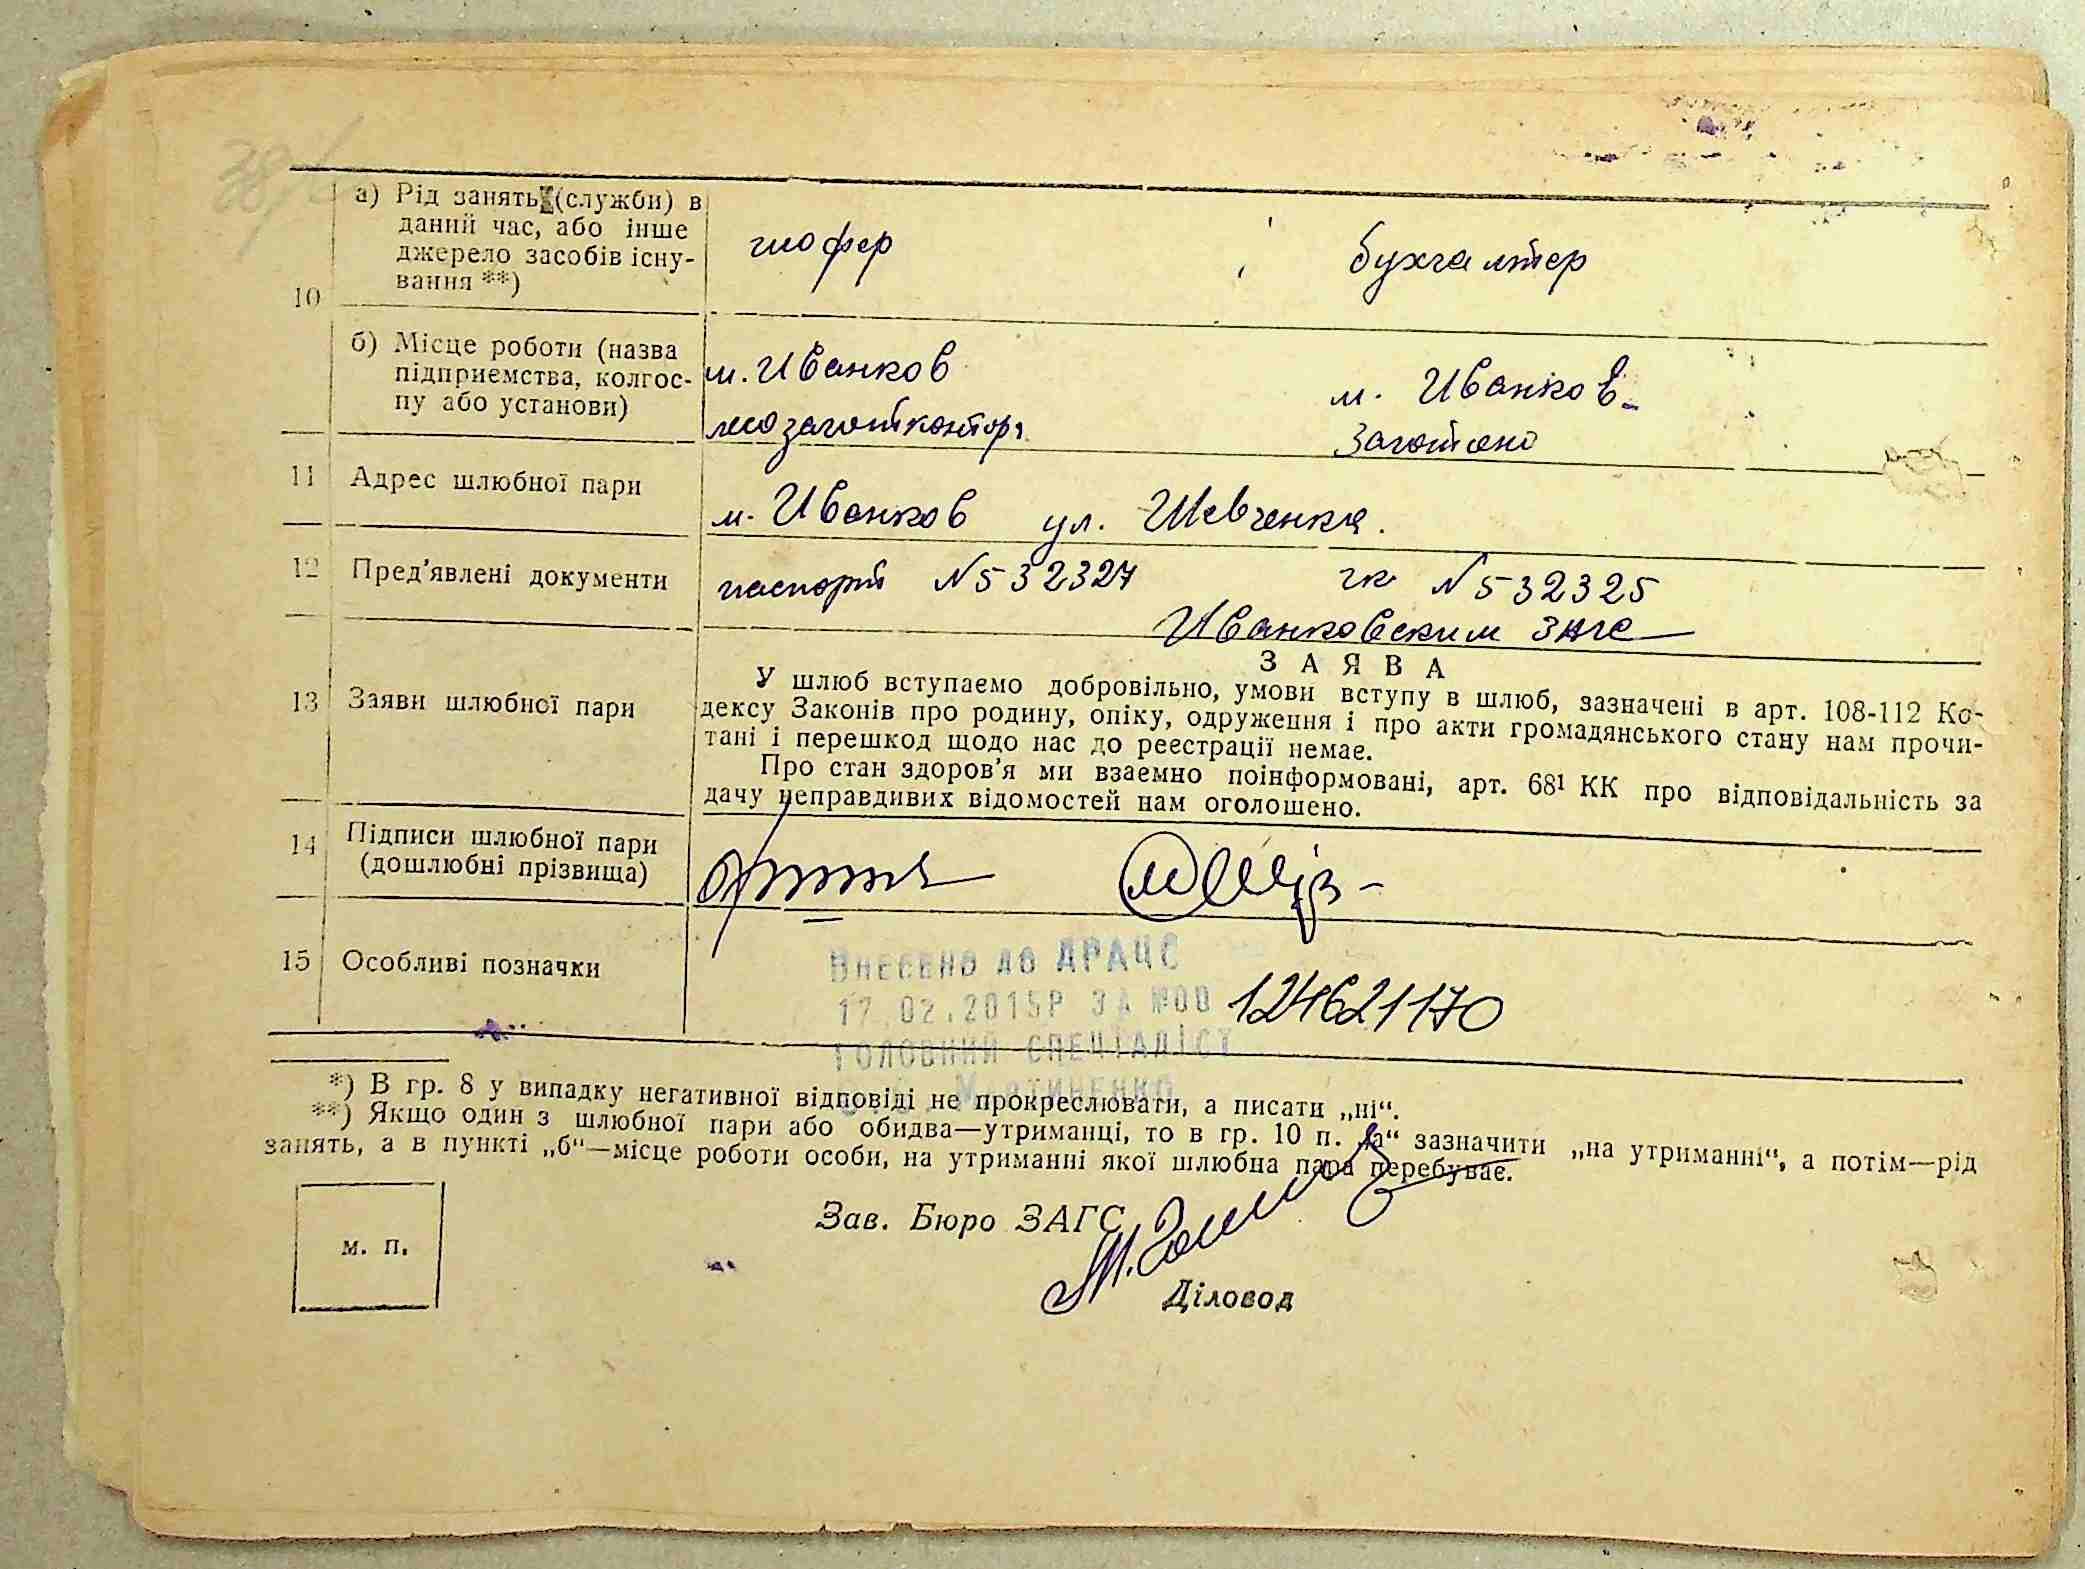 а) Рід занять (служби) в
даний час, або інше
джерело засобів існу-
вання **)
10
шофер
бухгалтер
б) Місце роботи (назва
підприємства, колгос-
пу або установи)
м. Иванков
м. Иванков
11 Адрес шлюбної пари
м. Иванков ул. Шевченка.
12 Пред'явлені документи
паспорт №532327
№532325
Иванковским ЗАГС
З А Я В А
13 Заяви шлюбної пари
У шлюб вступаємо добровільно, умови вступу в шлюб, зазначені в арт. 108-112 Ко-
дексу Законів про родину, опіку, одруження і про акти громадянського стану нам прочи-
тані і перешкод щодо нас до реєстрації немає.
Про стан здоров'я ми взаємно поінформовані, арт. 68¹ КК про відповідальність за
дачу неправдивих відомостей нам оголошено.
14 Підписи шлюбної пари
(дошлюбні прізвища)
15 Особливі позначки
Внесено до ДРАЦС
17.02.2015р за №00 124621170
головний спеціаліст
Мартиненко
*) В гр. 8 у випадку негативної відповіді не прокреслювати, а писати „ні“.
**) Якщо один з шлюбної пари або обидва—утриманці, то в гр. 10 п. „а“ зазначити „на утриманні“, а потім—рід
занять, а в пункті „б“—місце роботи особи, на утриманні якої шлюбна пара перебуває.
Зав. Бюро ЗАГС
м. п.
Діловод